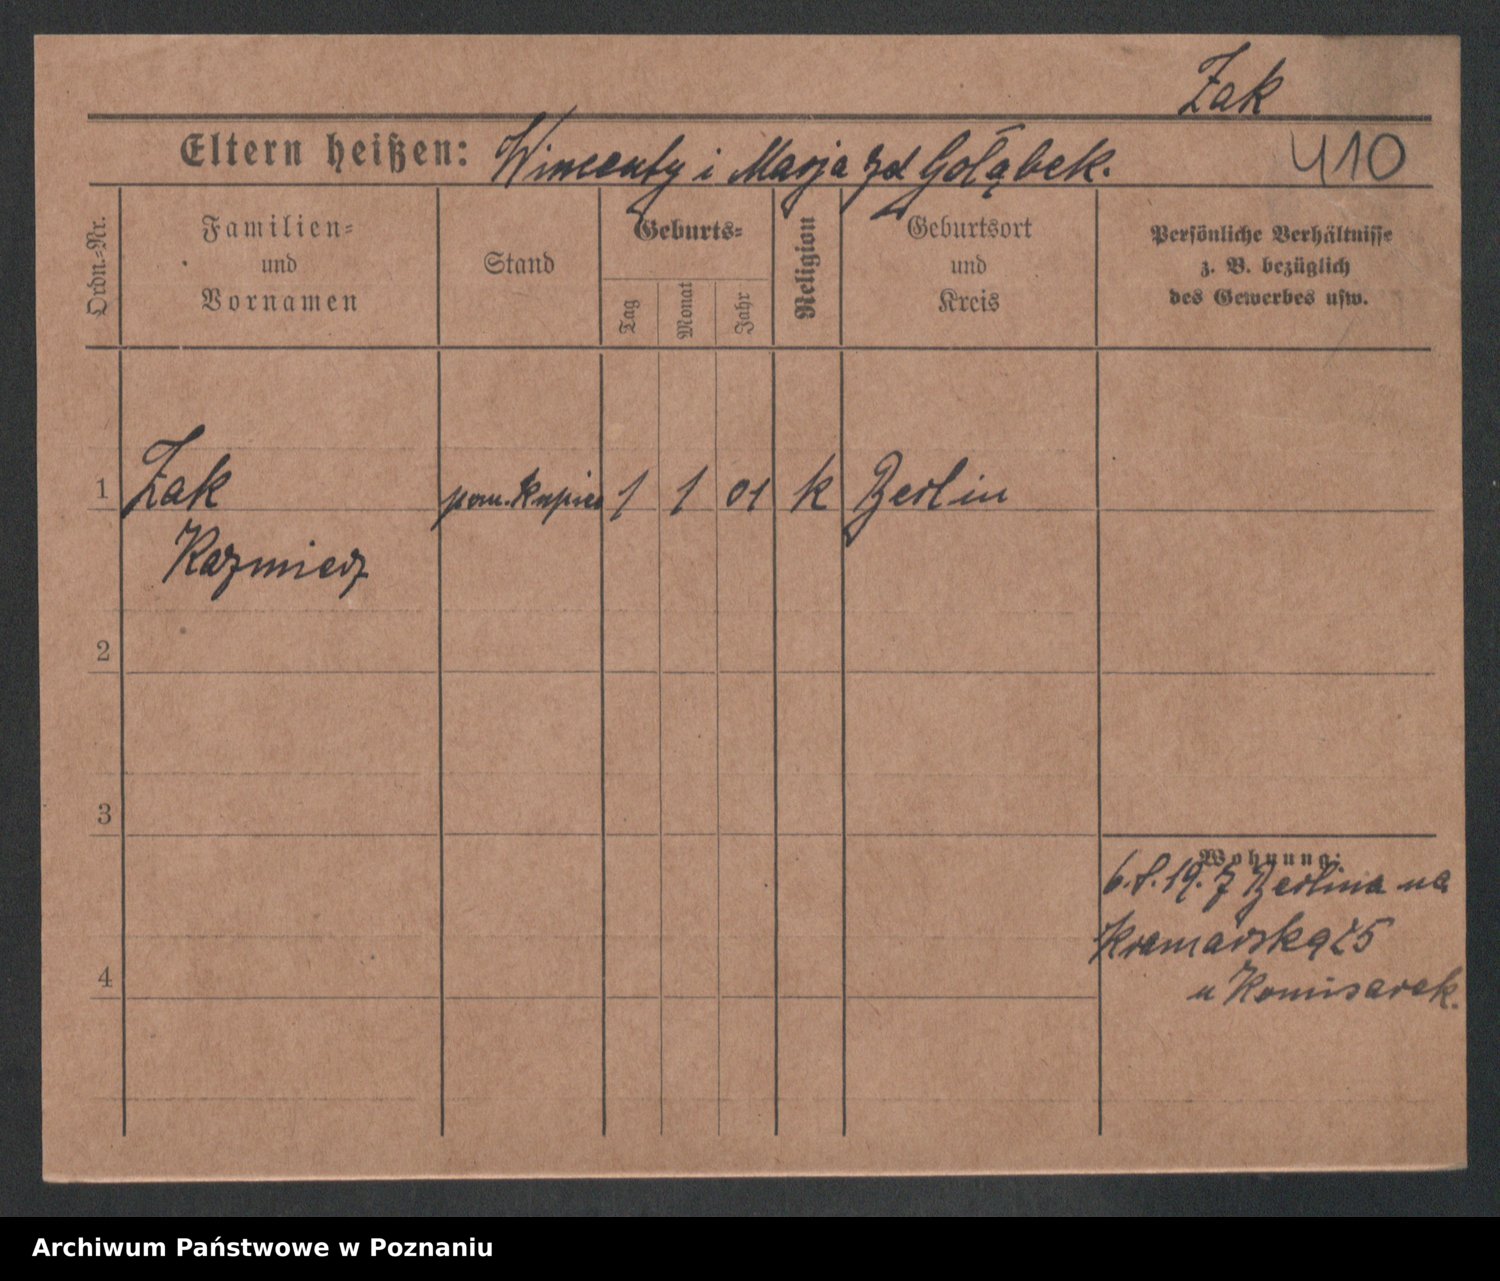 Żak
Eltern heißen: Wincenty i Marja zd Gołąbek.
410
Ordn.=Nr.
Familien=
und
Vornamen
Stand
Geburts=
Tag
Monat
Jahr
Religion
Geburtsort
und
Kreis
Persönliche Verhältnisse
z. B. bezüglich
des Gewerbes usw.
1 Żak pom. kupiec 1 1 01 k Berlin
Kazmierz
2
3
Wohnung:
19. z Berlina na
Kramarską 25
4
u Komisarek.
Archiwum Państwowe w Poznaniu